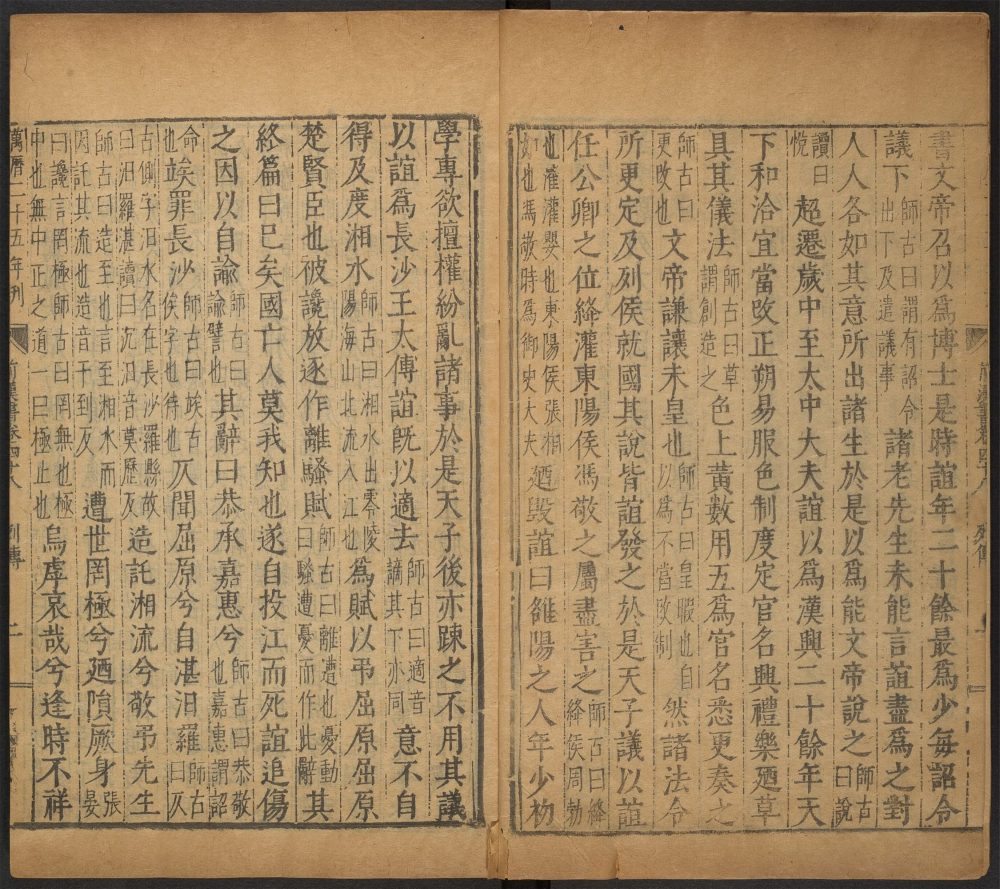 書文帝召以爲博士是時誼年二十餘最爲少每詔令
議下師古曰謂有詔令出下及遣議事諸老先生未能言誼盡爲之對
人人各如其意所出諸生於是以爲能文帝說之師古曰說
讀曰悅超遷歲中至太中大夫誼以爲漢興二十餘年天
下和洽宜當改正朔易服色制度定官名興禮樂廼草
具其儀法師古曰草謂創造之色上黃數用五爲官名悉更奏之
師古曰更改也文帝謙讓未皇也師古曰皇暇也自以爲不當改制然諸法令
所更定及列侯就國其說皆誼發之於是天子議以誼
任公卿之位絳灌東陽侯馮敬之屬盡害之師古曰絳絳侯周勃
也灌灌嬰也東陽侯張相如也馮敬時爲御史大夫廼毀誼曰雒陽之人年少初
學專欲擅權紛亂諸事於是天子後亦踈之不用其議
以誼爲長沙王太傅誼旣以適去師古曰適音謫其下亦同意不自
得及度湘水師古曰湘水出零陵陽海山北流入江也爲賦以弔屈原屈原
楚賢臣也被讒放逐作離騷賦師古曰離遭也憂動曰騷遭憂而作此辭其
終篇曰已矣國亡人莫我知也遂自投江而死誼追傷
之因以自諭師古曰諭譬也其辭曰恭承嘉惠兮師古曰恭敬也嘉惠謂詔
命也竢罪長沙師古曰竢古俟字也俟待也仄聞屈原兮自湛汨羅師古曰仄
古側字汨水名在長沙羅縣故曰汨羅湛讀曰沉汨音莫歷反造託湘流兮敬弔先生
師古曰造至也言至湘水而因託其流也造音千到反遭世罔極兮廼隕厥身張晏
曰讒言罔極師古曰罔無也極中也無中正之道一曰極止也烏虖哀哉兮逢時不祥
萬曆二十五年刊
前漢書卷四十八 列傳 二